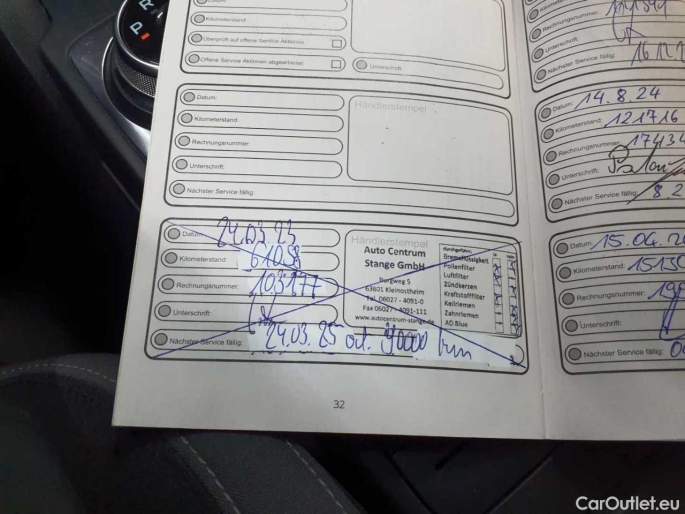 P R
Kilometerstand
Überprüft auf offene Service Aktionen
Offene Service Aktionen abgearbeitet
Unterschrift
Datum:
Kilometerstand:
Rechnungsnummer:
Unterschrift:
Nächster Service fällig:
Händlerstempel
Datum: 24.03.23
Kilometerstand: 61038
Rechnungsnummer: 103177
Unterschrift:
Nächster Service fällig: 24.03.25 od. 90000 km
Händlerstempel
Auto Centrum
Stange GmbH
Burgweg 5
63801 Kleinostheim
Tel. 06027 - 4091-0
Fax 06027 - 4091-111
www.autocentrum-stange.de
Bremsflüssigkeit
Pollenfilter
Luftfilter
Zündkerzen
Kraftstofffilter
Keilriemen
Zahnriemen
AD Blue
32
Rechnungsnummer:
Unterschrift:
Nächster Service fällig: 16.12.2
Datum: 14.8.24
Kilometerstand: 121716
Rechnungsnummer: 17434
Unterschrift:
Nächster Service fällig: 8.2
Datum: 15.04.20
Kilometerstand: 15130
Rechnungsnummer:
Unterschrift:
Nächster Service fällig:
CarOutlet.eu